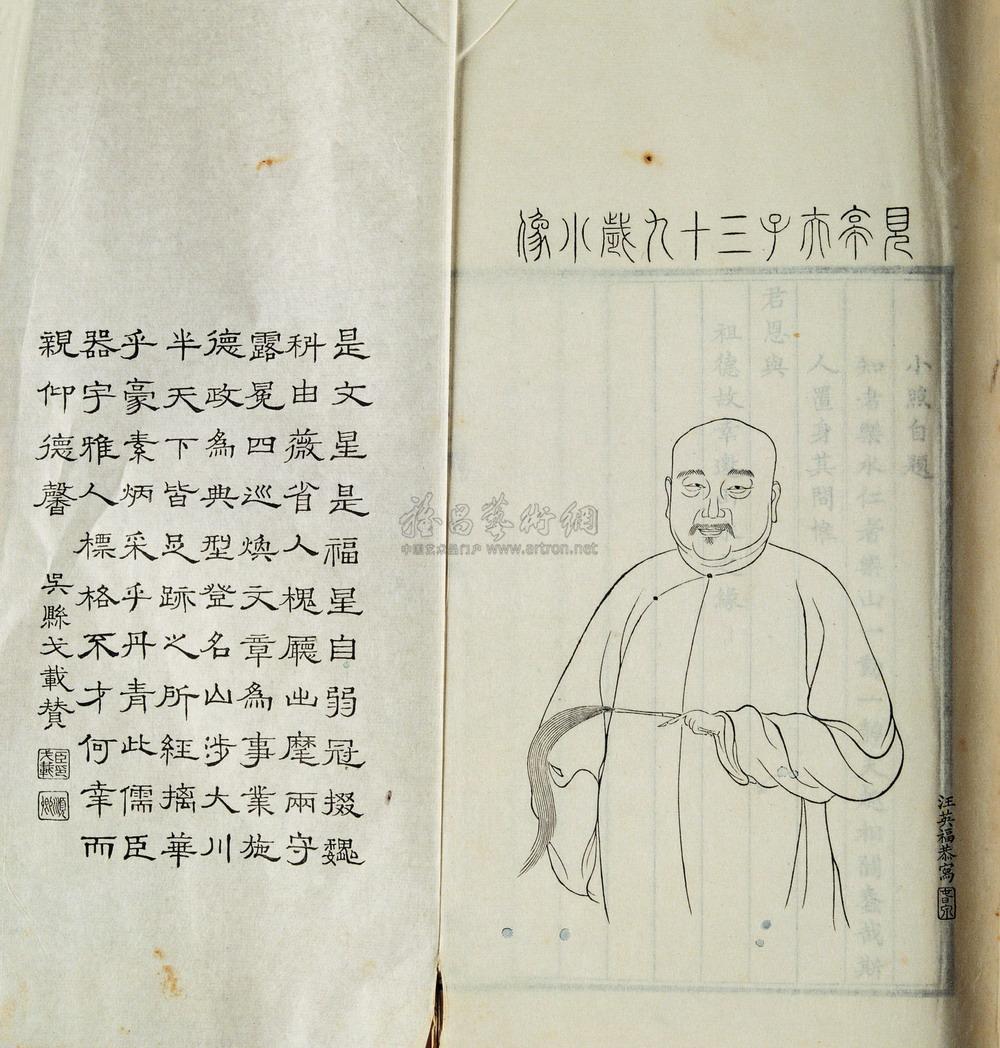 見亭夫子三十九歲小像
小照自題
知者樂水仁者樂山一動一靜
人置身其間惟
君恩與
祖德故幸邀
汪英福恭寫
是文星是福星自弱冠掇巍
科由薇省入槐廳出麾兩守
露冕四巡煥文章為事業施
德政為典型登名山涉大川
半天下皆足跡之所經摛華
乎豪素炳采乎丹青此儒臣
器宇雅人標格不才何幸而
親仰德馨
吳縣戈載贊
雅昌藝術網
中国艺术品门户 www.artron.net